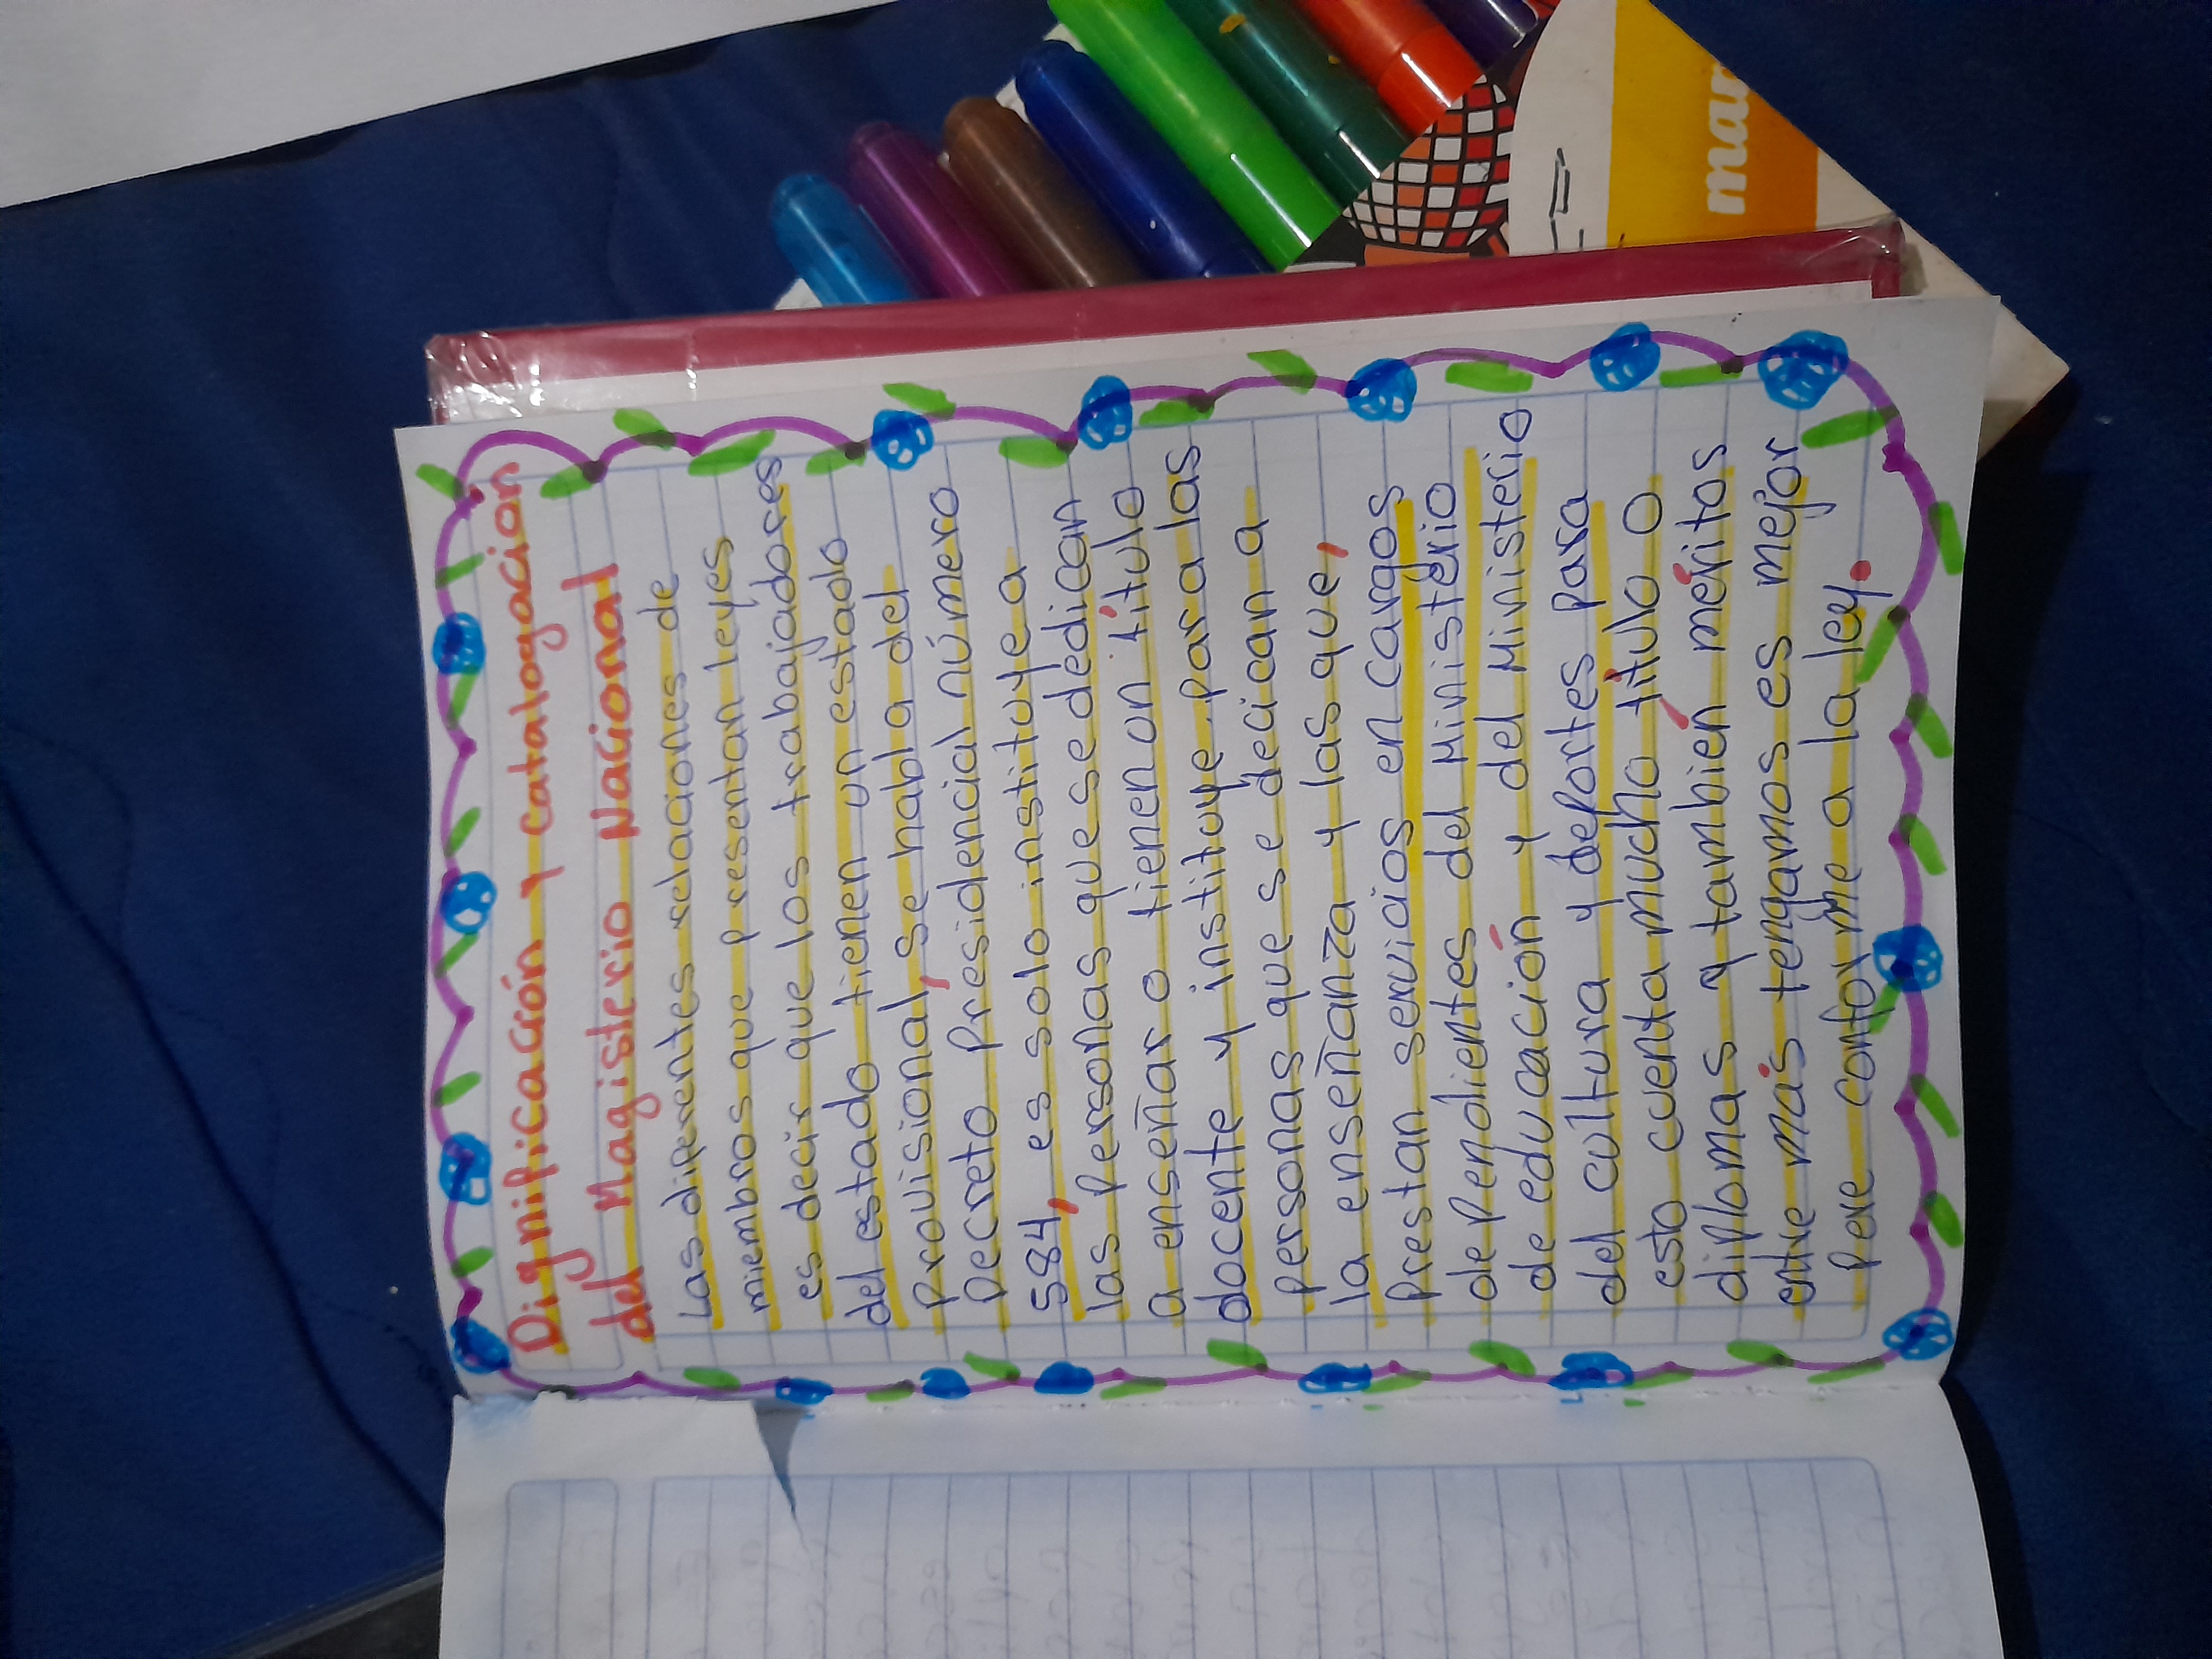 Dignificación y catalogacion
del Magisterio Nacional
Las diferentes relaciones de
miembros que presentan leyes
es decir que los trabajadores
del estado tienen un estado
Provisional, se habla del
Decreto Presidencial número
584, es solo instituye a
las Personas que se dedican
a enseñar o tienen un título
docente y instituye para las
personas que se decican a
la enseñanza y las que,
Prestan servicios en cargos
de Pendientes del Ministerio
de educación y del Ministerio
del cultura y deportes para
esto cuenta mucho título o
diplomas y tambien méritos
entre más tengamos es mejor
pere conforme a la ley.
mar